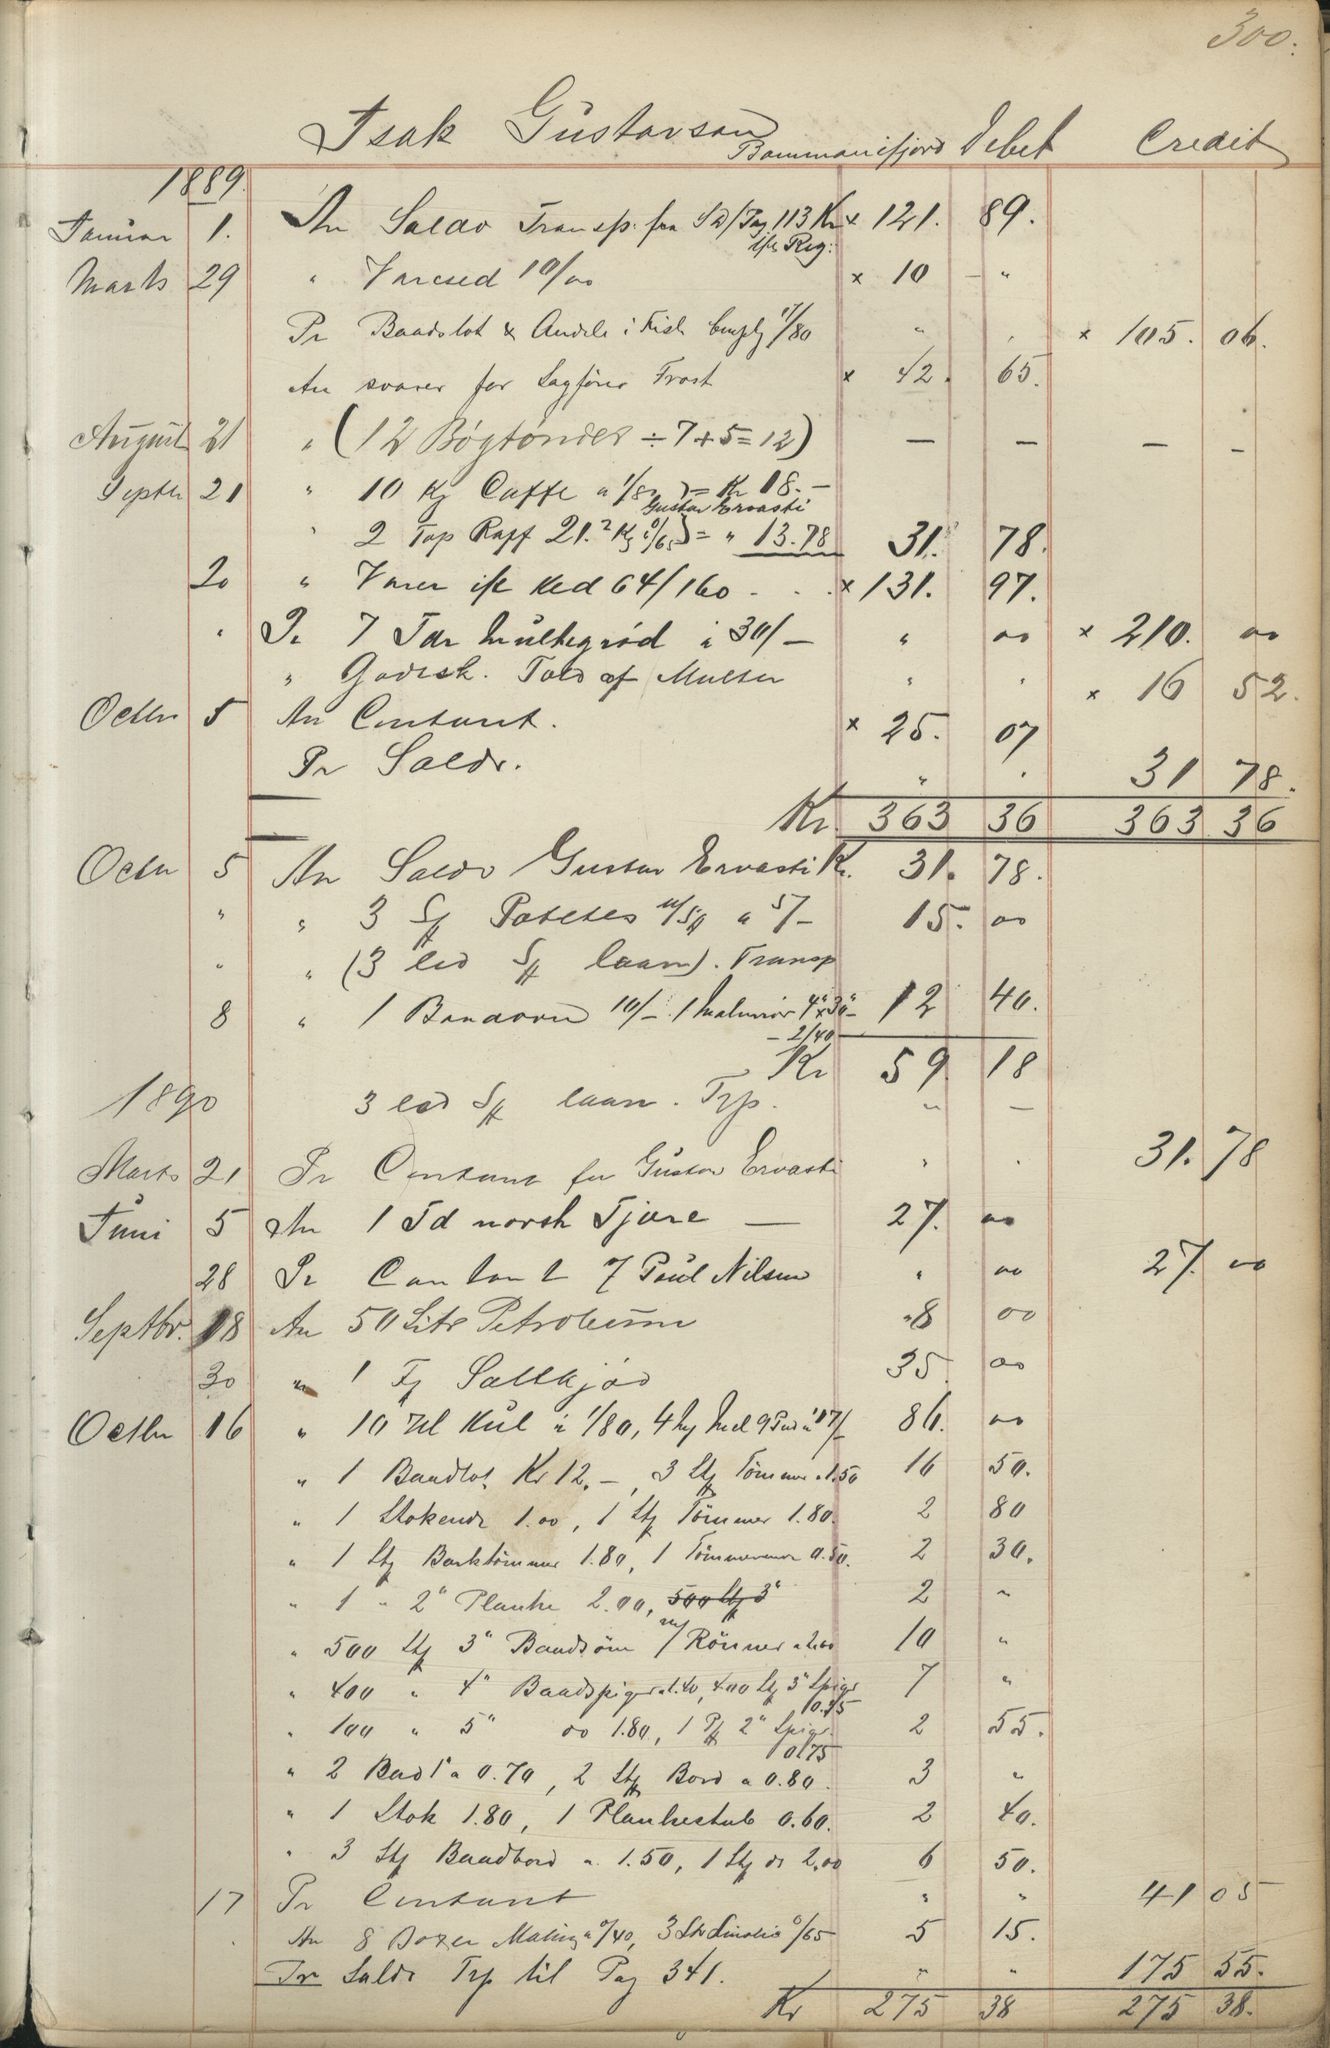 300.
Isak Gustavsen Debet Credit
1889.
Januar 1. An Saldo Transp. fra Pag 113 Kr × 121. 89.
ifl Reg:
Marts 29 " Varesed 10/00 × 10 - "
Pr Baadslot & Andele i Fisk " " × 105. 06.
An svarer for Sagfører Frost × 42. 65.
August 21 " (12 Bøgtønder ÷ 7 + 5 = 12) — — — —
Septbr 21 " 10 Kg Caffe a 1/80 = Kr 18. -
Gustav Ervasti
" 2 Top Raff 21.2 Kg 0/65 = " 13.78 31. 78.
20 " Varer ifl sed 64/160 . . . × 131. 97.
" Pr 7 Tdr Multegrød a 30/- " 00 × 210. 00
" Godtsk. Told af Multer " " × 16 52.
Octbr 5 An Contant. × 25. 07
Pr Saldo. " " 31 78.
Kr. 363 36 363 36
Octbr 5 An Saldo Gustav Ervasti Kr. 31. 78.
" " 3 Poteter a 5/- 15. 00
" " (3 laan). Transp
8 " 1 Baadovn 10/- 1 4" × 30" 12 40.
- 2/40
Kr 59. 18
1890 3 laan. Trp. " —
Marts 21 Pr Contant for Gustav Ervasti " . 31. 78
Juni 5 An 1 Td norsk Tjære — 27. 00
28 Pr Contant Paul Nilsen " 00 27. 00
Septbr. 18 An 50 Litr Petroleum " 8 00
30 " 1 Saltkjød 35 00
Octbr 16 " 10 Hl Kul a 1/80, 4 Mel 9 Pud a 17/- 86. 00
" 1 Kr 12. -, 3 Stk Tømmer a 1.50 16 50.
" 1 Stokende 1.00, 1 Stk Tømmer 1.80. 2 80
" 1 Stk Barktømmer 1.80, 1 0.50. 2 30.
" 1 " 2" Planke 2.00, 500 Stk 3" 2 "
" 500 Stk 3" Baadsøm m/ Rønner a 2.00 10 "
" 400 " 4" Baadspiger a 1.40, 400 Stk 3" Spiger 7 "
0.35
" 100 " 5" do 1.80, 1 2" Spiger 2 55.
0.75
" 2 1" a 0.70, 2 Stk Bord a 0.80. 3 "
" 1 Stok 1.80, 1 Plankestub 0.60. 2 40.
" 3 Stk Baadbord a 1.50, 1 Stk do 2.00 6 50.
17 Pr Contant " " 41 05
. An 8 Boxer Maling a 0/40, 3 Linolie 0/65 5 15.
Pr Saldo Trp til Pag 341. " " 175 55.
Kr 275 38 275 38.